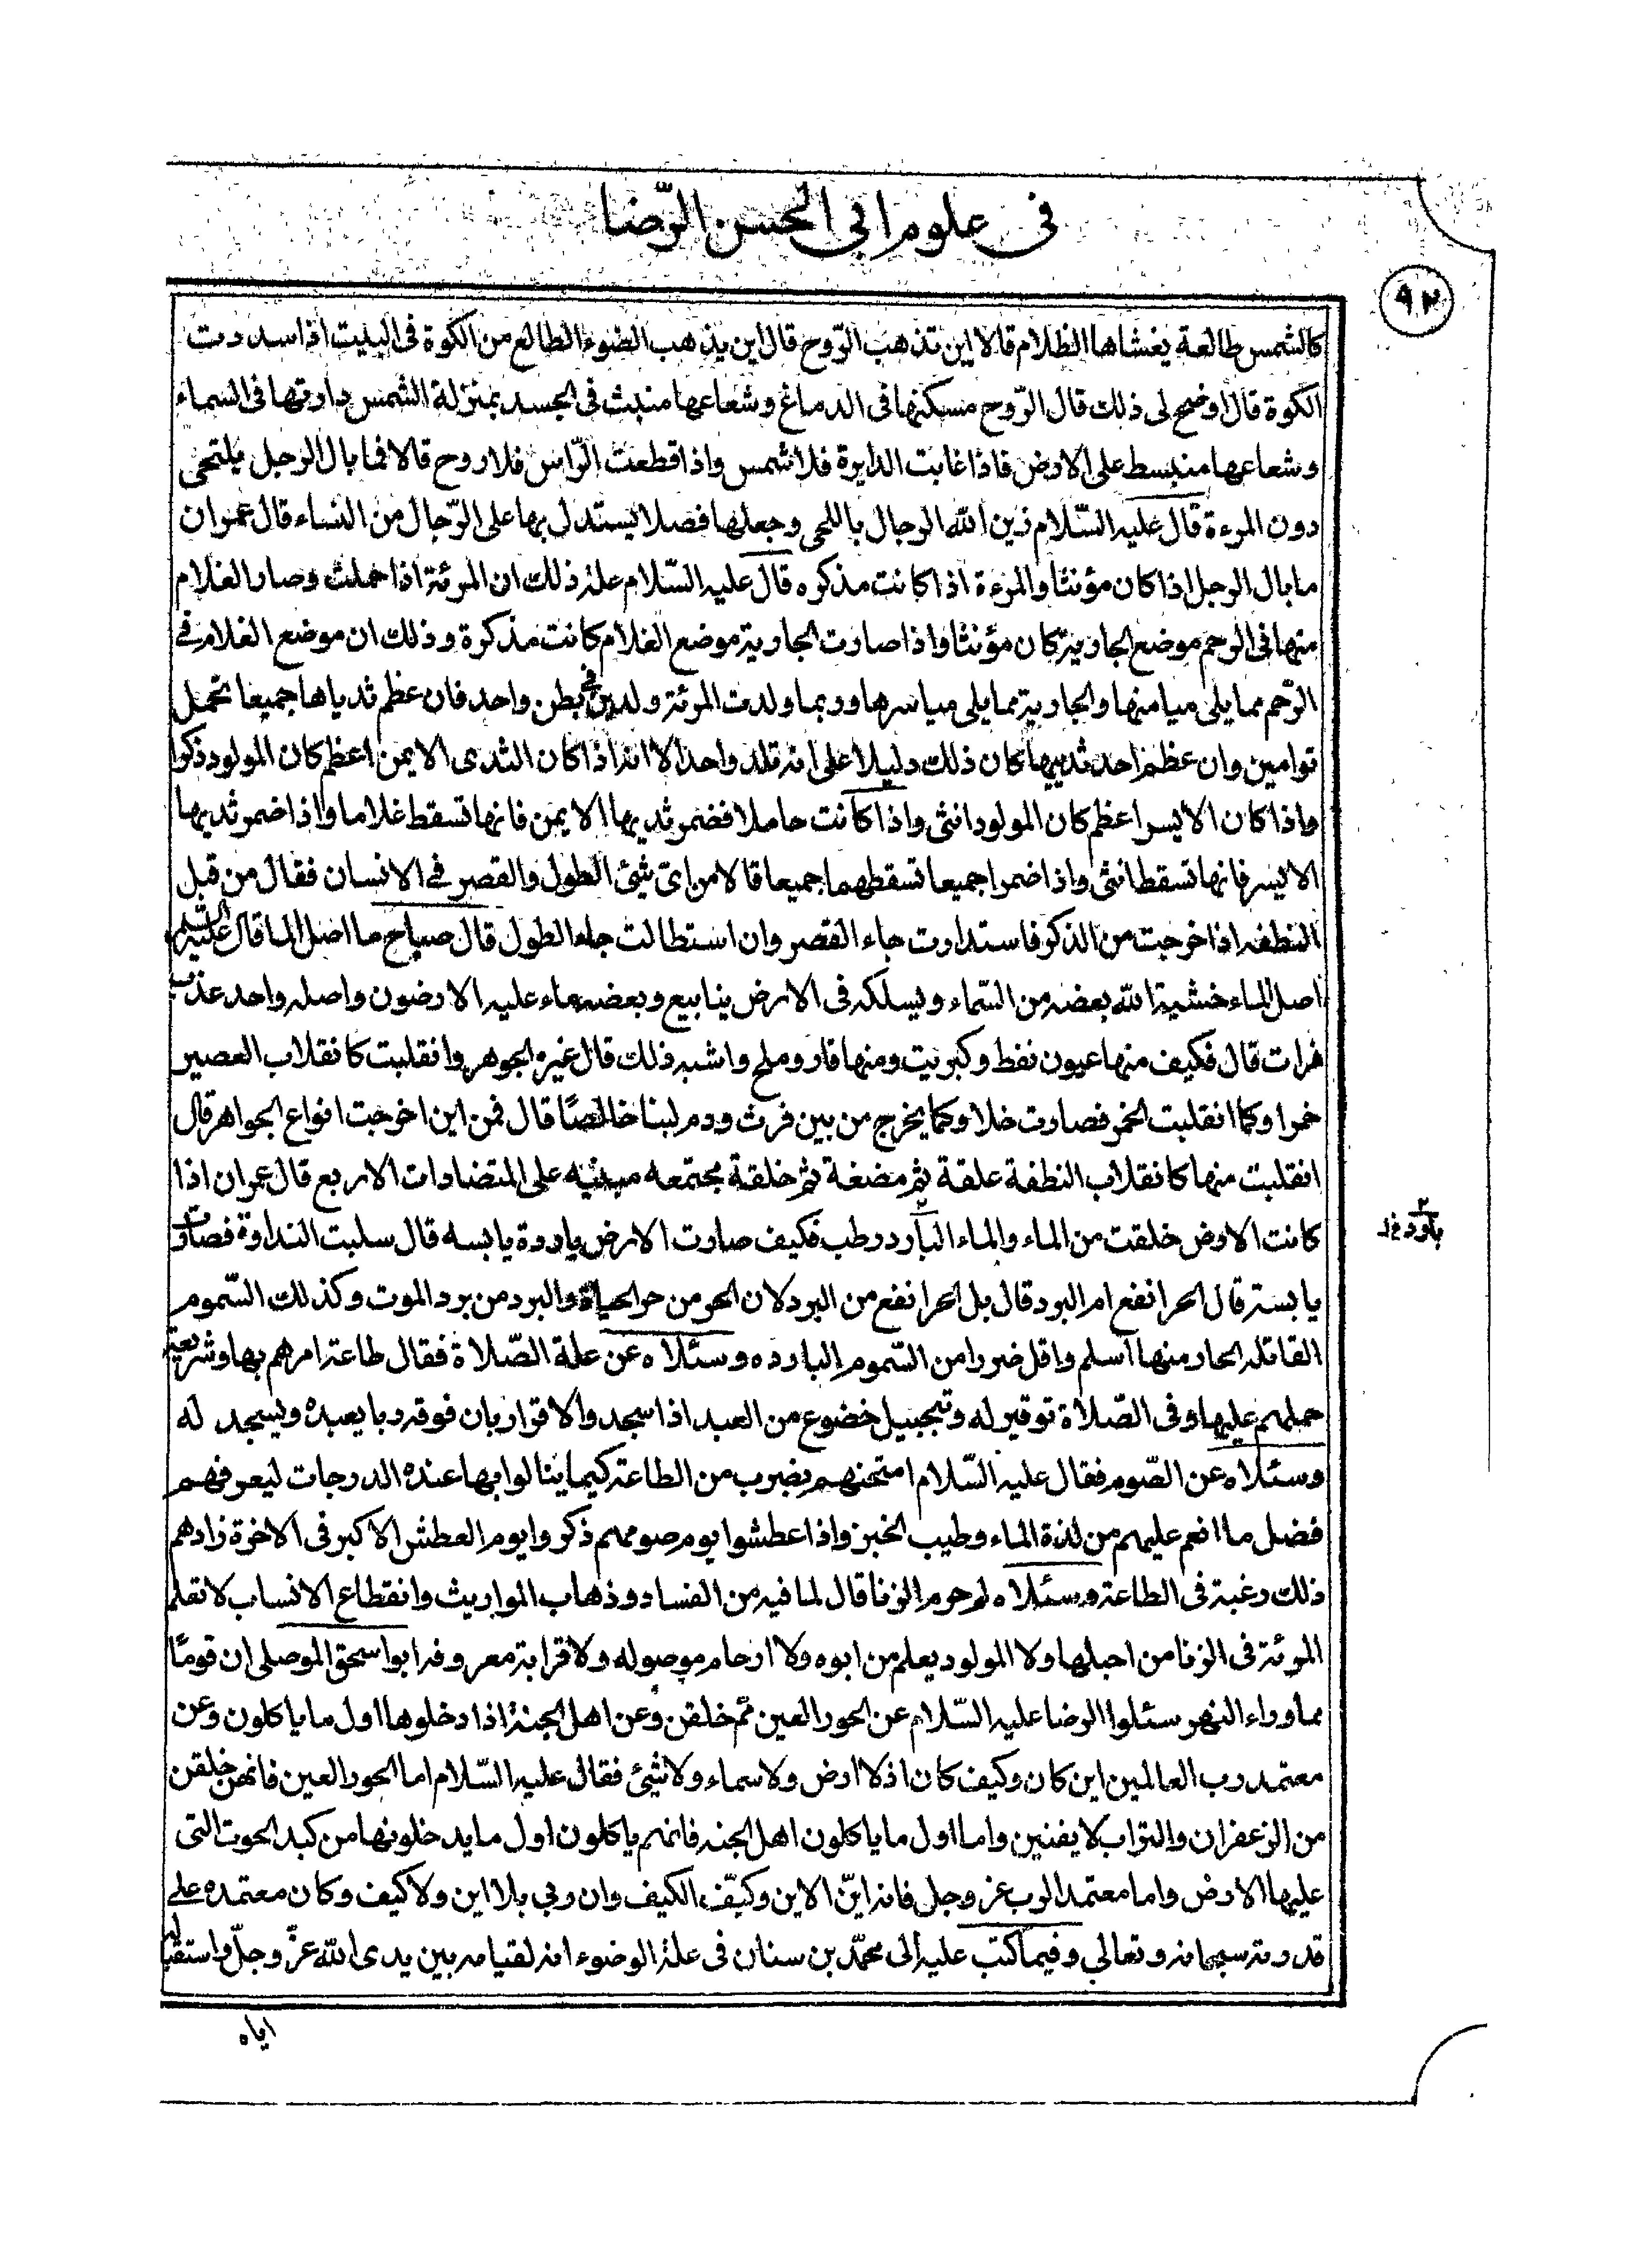 في علوم ابي الحسن الرّضا
٩٢
كالشمس طالعة يغشاها الظلام قالا اين تذهب الرّوح قال اين يذهب الضوء الطالع من الكوة فى البيت اذا سددت
الكوة قال اوضح لى ذلك قال الرّوح مسكنها فى الدماغ وشعاعها منبث فى الجسد بمنزلة الشمس دارتها فى السماء
وشعاعها منبسط على الارض فاذا غابت الدايرة فلا شمس واذا قطعت الرّاس فلا روح قالا فما بال الرجل يلتحى
دون المرءة قال عليه السّلام زين الله الرجال باللحى وجعلها فصلا يستدل بها على الرّجال من النساء قال عمران
ما بال الرجل اذا كان مؤنثا والمرءة اذا كانت مذكره قال عليه السّلام علة ذلك ان المرئة اذا حملت وصار الغلام
منها فى الرحم موضع الجارية كان مؤنثا واذا صارت الجارية موضع الغلام كانت مذكرة وذلك ان موضع الغلام في
الرّحم مما يلى ميامنها والجارية مما يلى مياسرها وربما ولدت المرئة ولدين في بطن واحد فان عظم ثدياها جميعا تحمل
توامين وان عظم احد ثدييها كان ذلك دليلا على انه تلد واحدا الا انه اذا كان الثدى الايمن اعظم كان المولود ذكرا
واذا كان الايسر اعظم كان المولود انثى واذا كانت حاملا فضمر ثديها الايمن فانها تسقط غلاما واذا ضمر ثديها
الايسر فانها تسقط انثى واذا ضمرا جميعا تسقطهما جميعا قالا من اىّ شئ الطول والقصر في الانسان فقال من قبل
النطفه اذا خرجت من الذكر فاستدارت جاء القصر وان استطالت جاء الطول قال صباح ما اصل الما قال عليه السلم
اصل الماء خشية الله بعضه من السّماء ويسلكه فى الارض ينابيع وبعضه ماء عليه الارضون واصله واحد عذب
فرات قال فكيف منها عيون نفط وكبريت ومنها قار وملح واشبه ذلك قال غيره الجوهر وانقلبت كانقلاب العصير
خمرا وكما انقلبت الخمر فصارت خلا وكما يخرج من بين فرث ودم لبنا خالصًا قال فمن اين اخرجت انواع الجواهر قال
انقلبت منها كانقلاب النطفة علقة ثم مضغة ثم خلقة مجتمعه مبنيه على المتضادات الاربع قال عمران اذا
كانت الارض خلقت من الماء والماء البارد رطب فكيف صارت الارض باردة يابسه قال سلبت النداوة فصارت
يابسة قال الحر انفع ام البرد قال بل الحر انفع من البرد لان الحر من حر الحياة والبرد من برد الموت وكذلك السّموم
القاتله الحار منها اسلم واقل ضررا من السّموم البارده وسئلاه عن علة الصّلاة فقال طاعة امرهم بها وشريعة
حملهم عليها وفى الصّلاة توقير له وتبجيل خضوع من العبد اذا سجد والاقرار بان فوقه ربا يعبده ويسجد له
وسئلاه عن الصّوم فقال عليه السّلام امتحنهم بضرب من الطاعة كيما ينالوا بها عنده الدرجات ليعرفهم
فضل ما انعم عليهم من لذة الماء وطيب الخبز واذا عطشوا يوم صومهم ذكروا يوم العطش الاكبر فى الاخرة زادهم
ذلك رغبة فى الطاعة وسئلاه لم حرم الزنا قال لما فيه من الفساد وذهاب المواريث وانقطاع الانساب لا تعلم
المرئة فى الزنا من احبلها ولا المولود يعلم من ابوه ولا ارحام موصوله ولا قرابة معروفه ابو اسحق الموصلى ان قومًا
مما وراء النهر سئلوا الرضا عليه السّلام عن الحور العين ممّ خلقن وعن اهل الجنة اذا دخلوها اول ما ياكلون وعن
معتمد رب العالمين اين كان وكيف كان اذ لا ارض ولا سماء ولا شئ فقال عليه السّلام اما الحور العين فانهن خلقن
من الزعفران والتراب لا يفنين واما اول ما ياكلون اهل الجنه فانهم ياكلون اول ما يدخلونها من كبد الحوت التى
عليها الارض واما معتمد الرب عز وجل فانه ايّن الاين وكيّف الكيف وان ربي بلا اين ولا كيف وكان معتمده على
قدرته سبحانه وتعالي وفيما كتب عليه الى محمّد بن سنان فى علة الوضوء انه لقيامه بين يدى الله عزّ وجلّ واستقباله
اياه